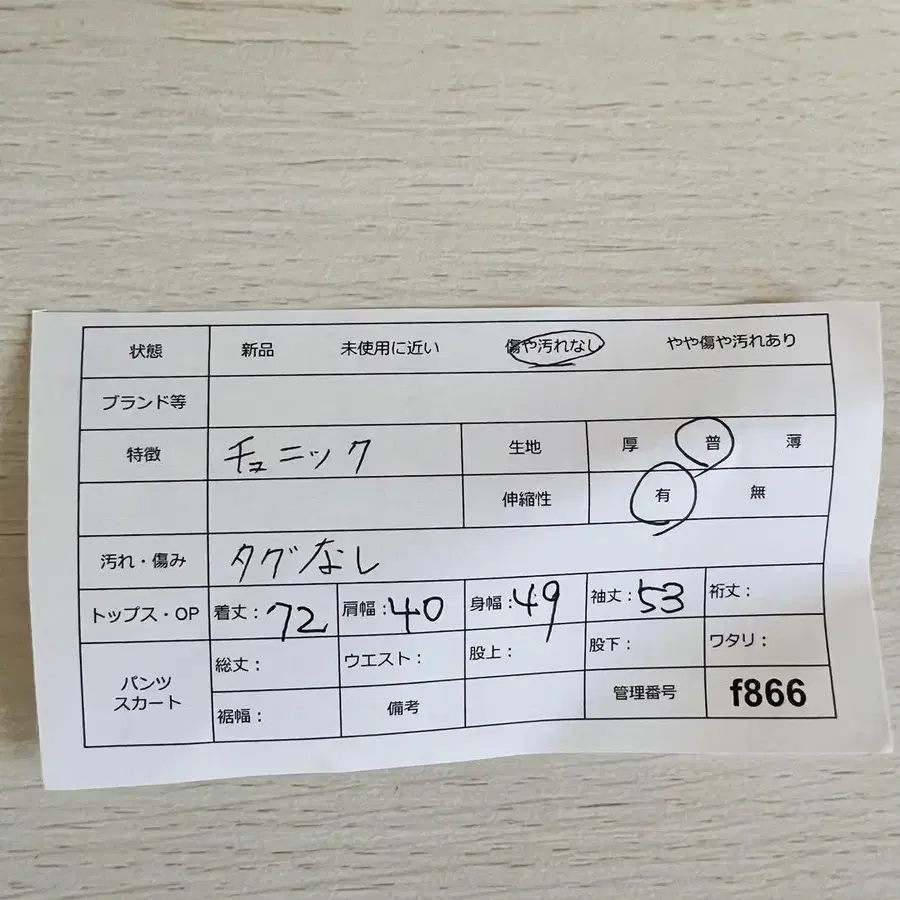 状態 新品 未使用に近い 傷や汚れなし やや傷や汚れあり
ブランド等
特徴 チュニック 生地 厚 普 薄
伸縮性 有 無
汚れ・傷み タグなし
トップス・OP 着丈：72 肩幅：40 身幅：49 袖丈：53 裄丈：
パンツ スカート 総丈： ウエスト： 股上： 股下： ワタリ：
裾幅： 備考 管理番号 f866